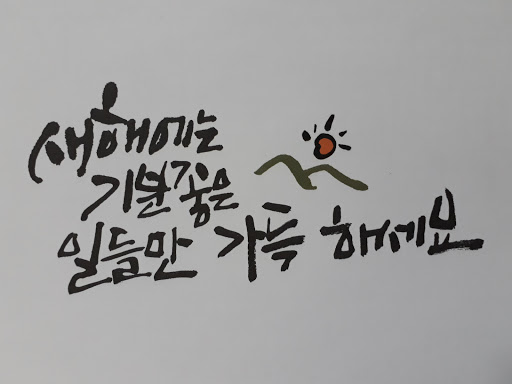 새해에는
기분좋은
일들만 가득 해세요